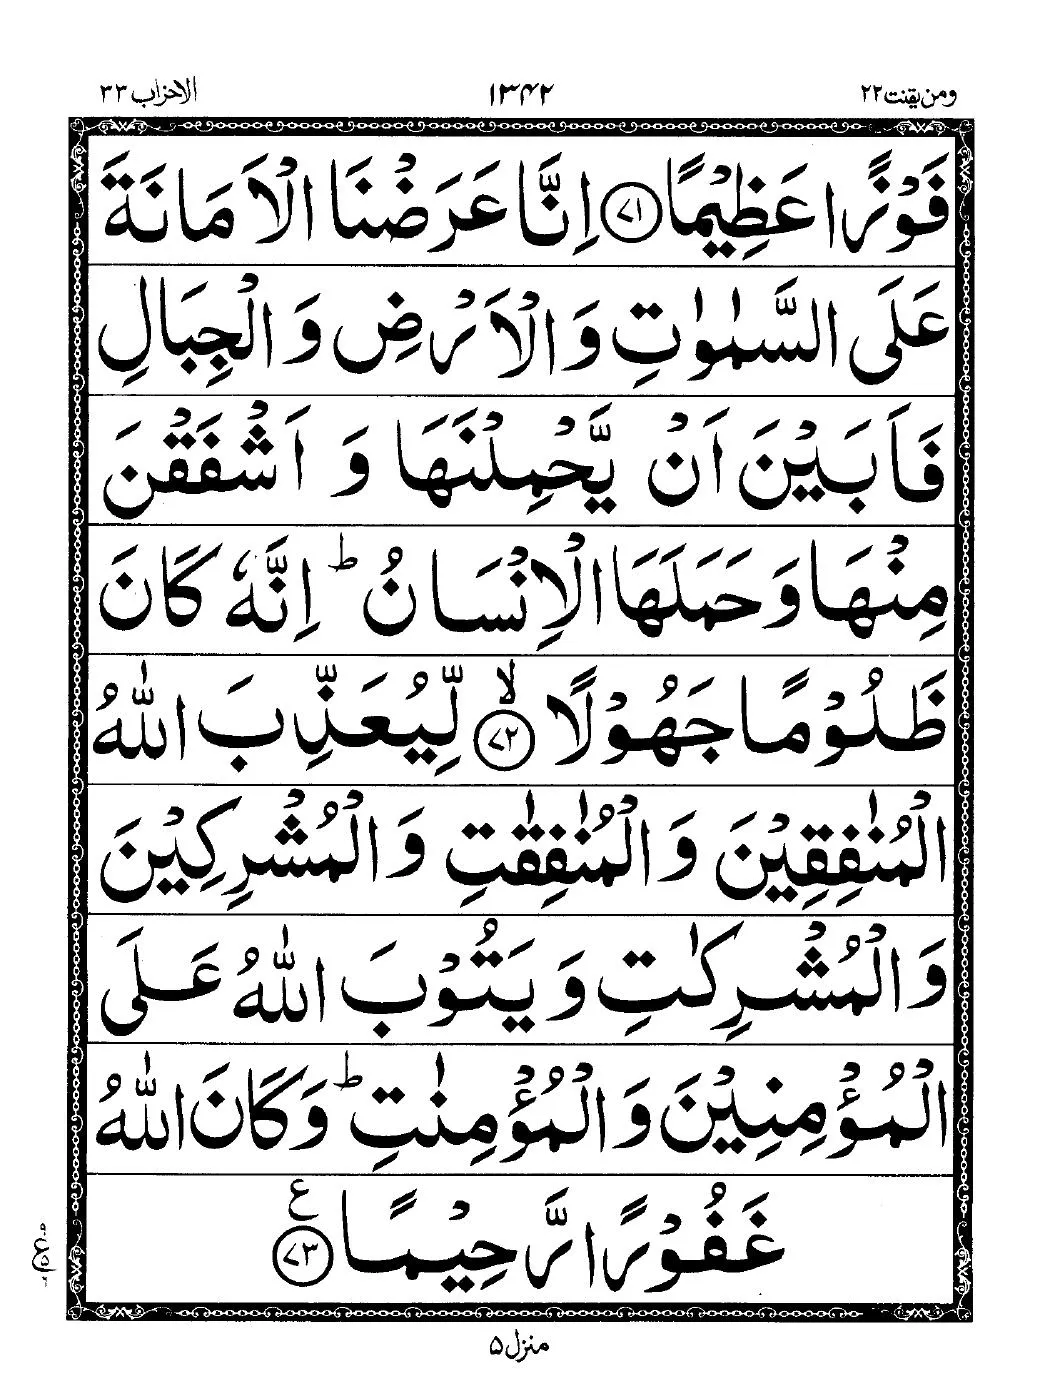 ومن يقنت ٢٢
١٣٤٢
الاحزاب ٣٣
فَوْزًا عَظِيْمًا ۝٧١ اِنَّا عَرَضْنَا الْاَمَانَةَ
عَلَى السَّمٰوٰتِ وَالْاَرْضِ وَالْجِبَالِ
فَاَبَيْنَ اَنْ يَّحْمِلْنَهَا وَ اَشْفَقْنَ
مِنْهَا وَحَمَلَهَا الْاِنْسَانُ ؕ اِنَّهٗ كَانَ
ظَلُوْمًا جَهُوْلًا ۙ۝٧٢ لِّيُعَذِّبَ اللّٰهُ
الْمُنٰفِقِيْنَ وَالْمُنٰفِقٰتِ وَالْمُشْرِكِيْنَ
وَالْمُشْرِكٰتِ وَيَتُوْبَ اللّٰهُ عَلَى
الْمُؤْمِنِيْنَ وَالْمُؤْمِنٰتِ ؕ وَكَانَ اللّٰهُ
غَفُوْرًا رَّحِيْمًا ۝٧٣ ع
منزل ۵